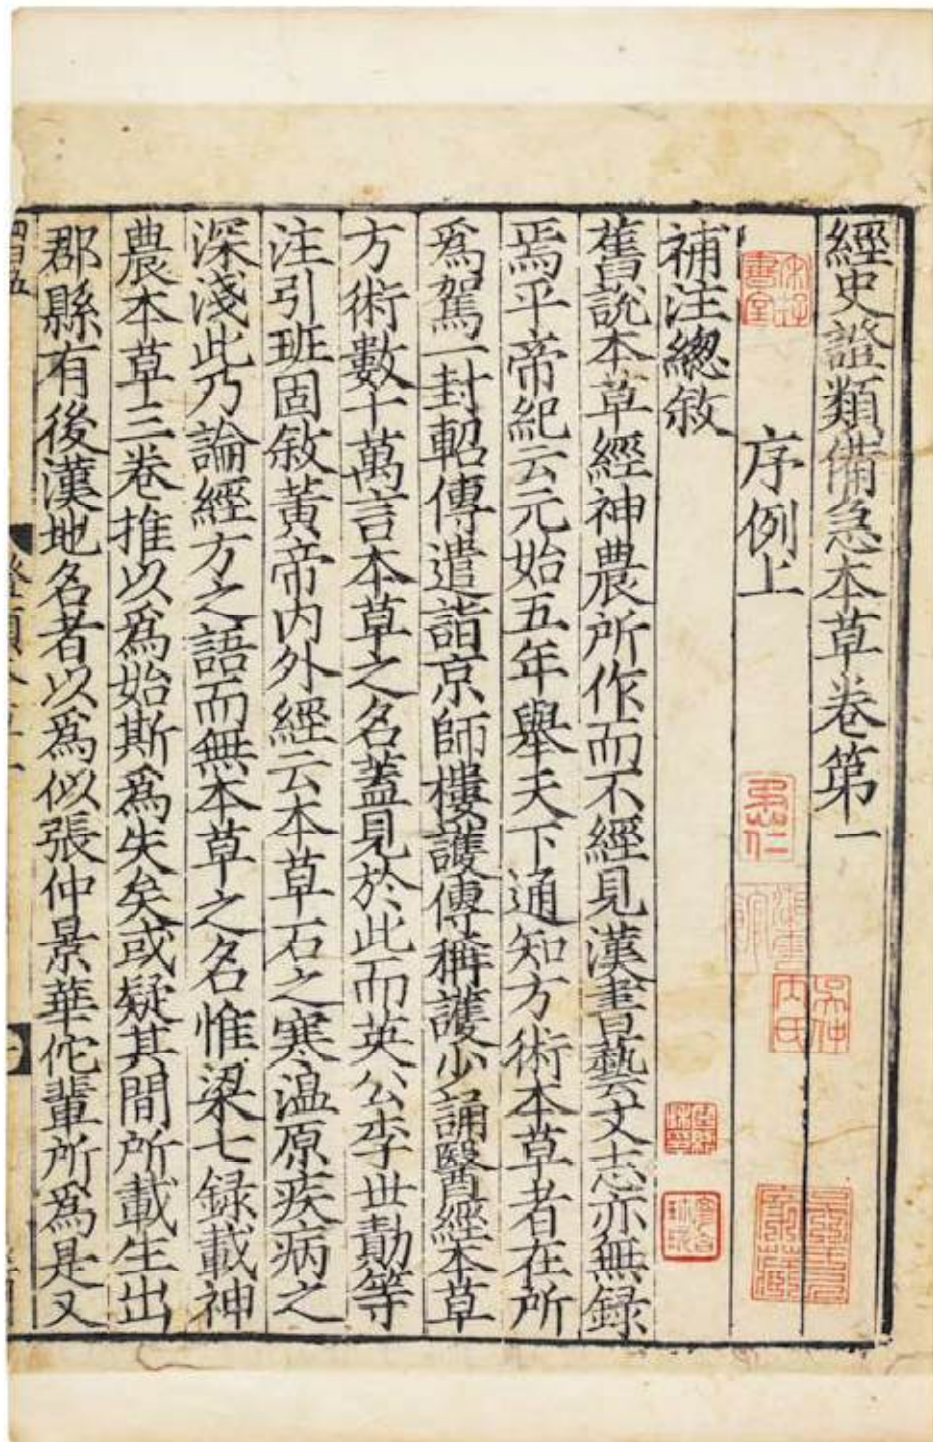 經史證類備急本草卷第一
序例上
補注總敘
舊說本草經神農所作而不經見漢書藝文志亦無録
焉平帝紀云元始五年舉天下通知方術本草者在所
爲駕一封軺傳遣詣京師樓護傳稱護少誦醫經本草
方術數十萬言本草之名蓋見於此而英公李世勣等
注引班固敘黃帝内外經云本草石之寒温原疾病之
深淺此乃論經方之語而無本草之名惟梁七録載神
農本草三卷推以爲始斯爲失矣或疑其間所載生出
郡縣有後漢地名者以爲似張仲景華佗輩所爲是又